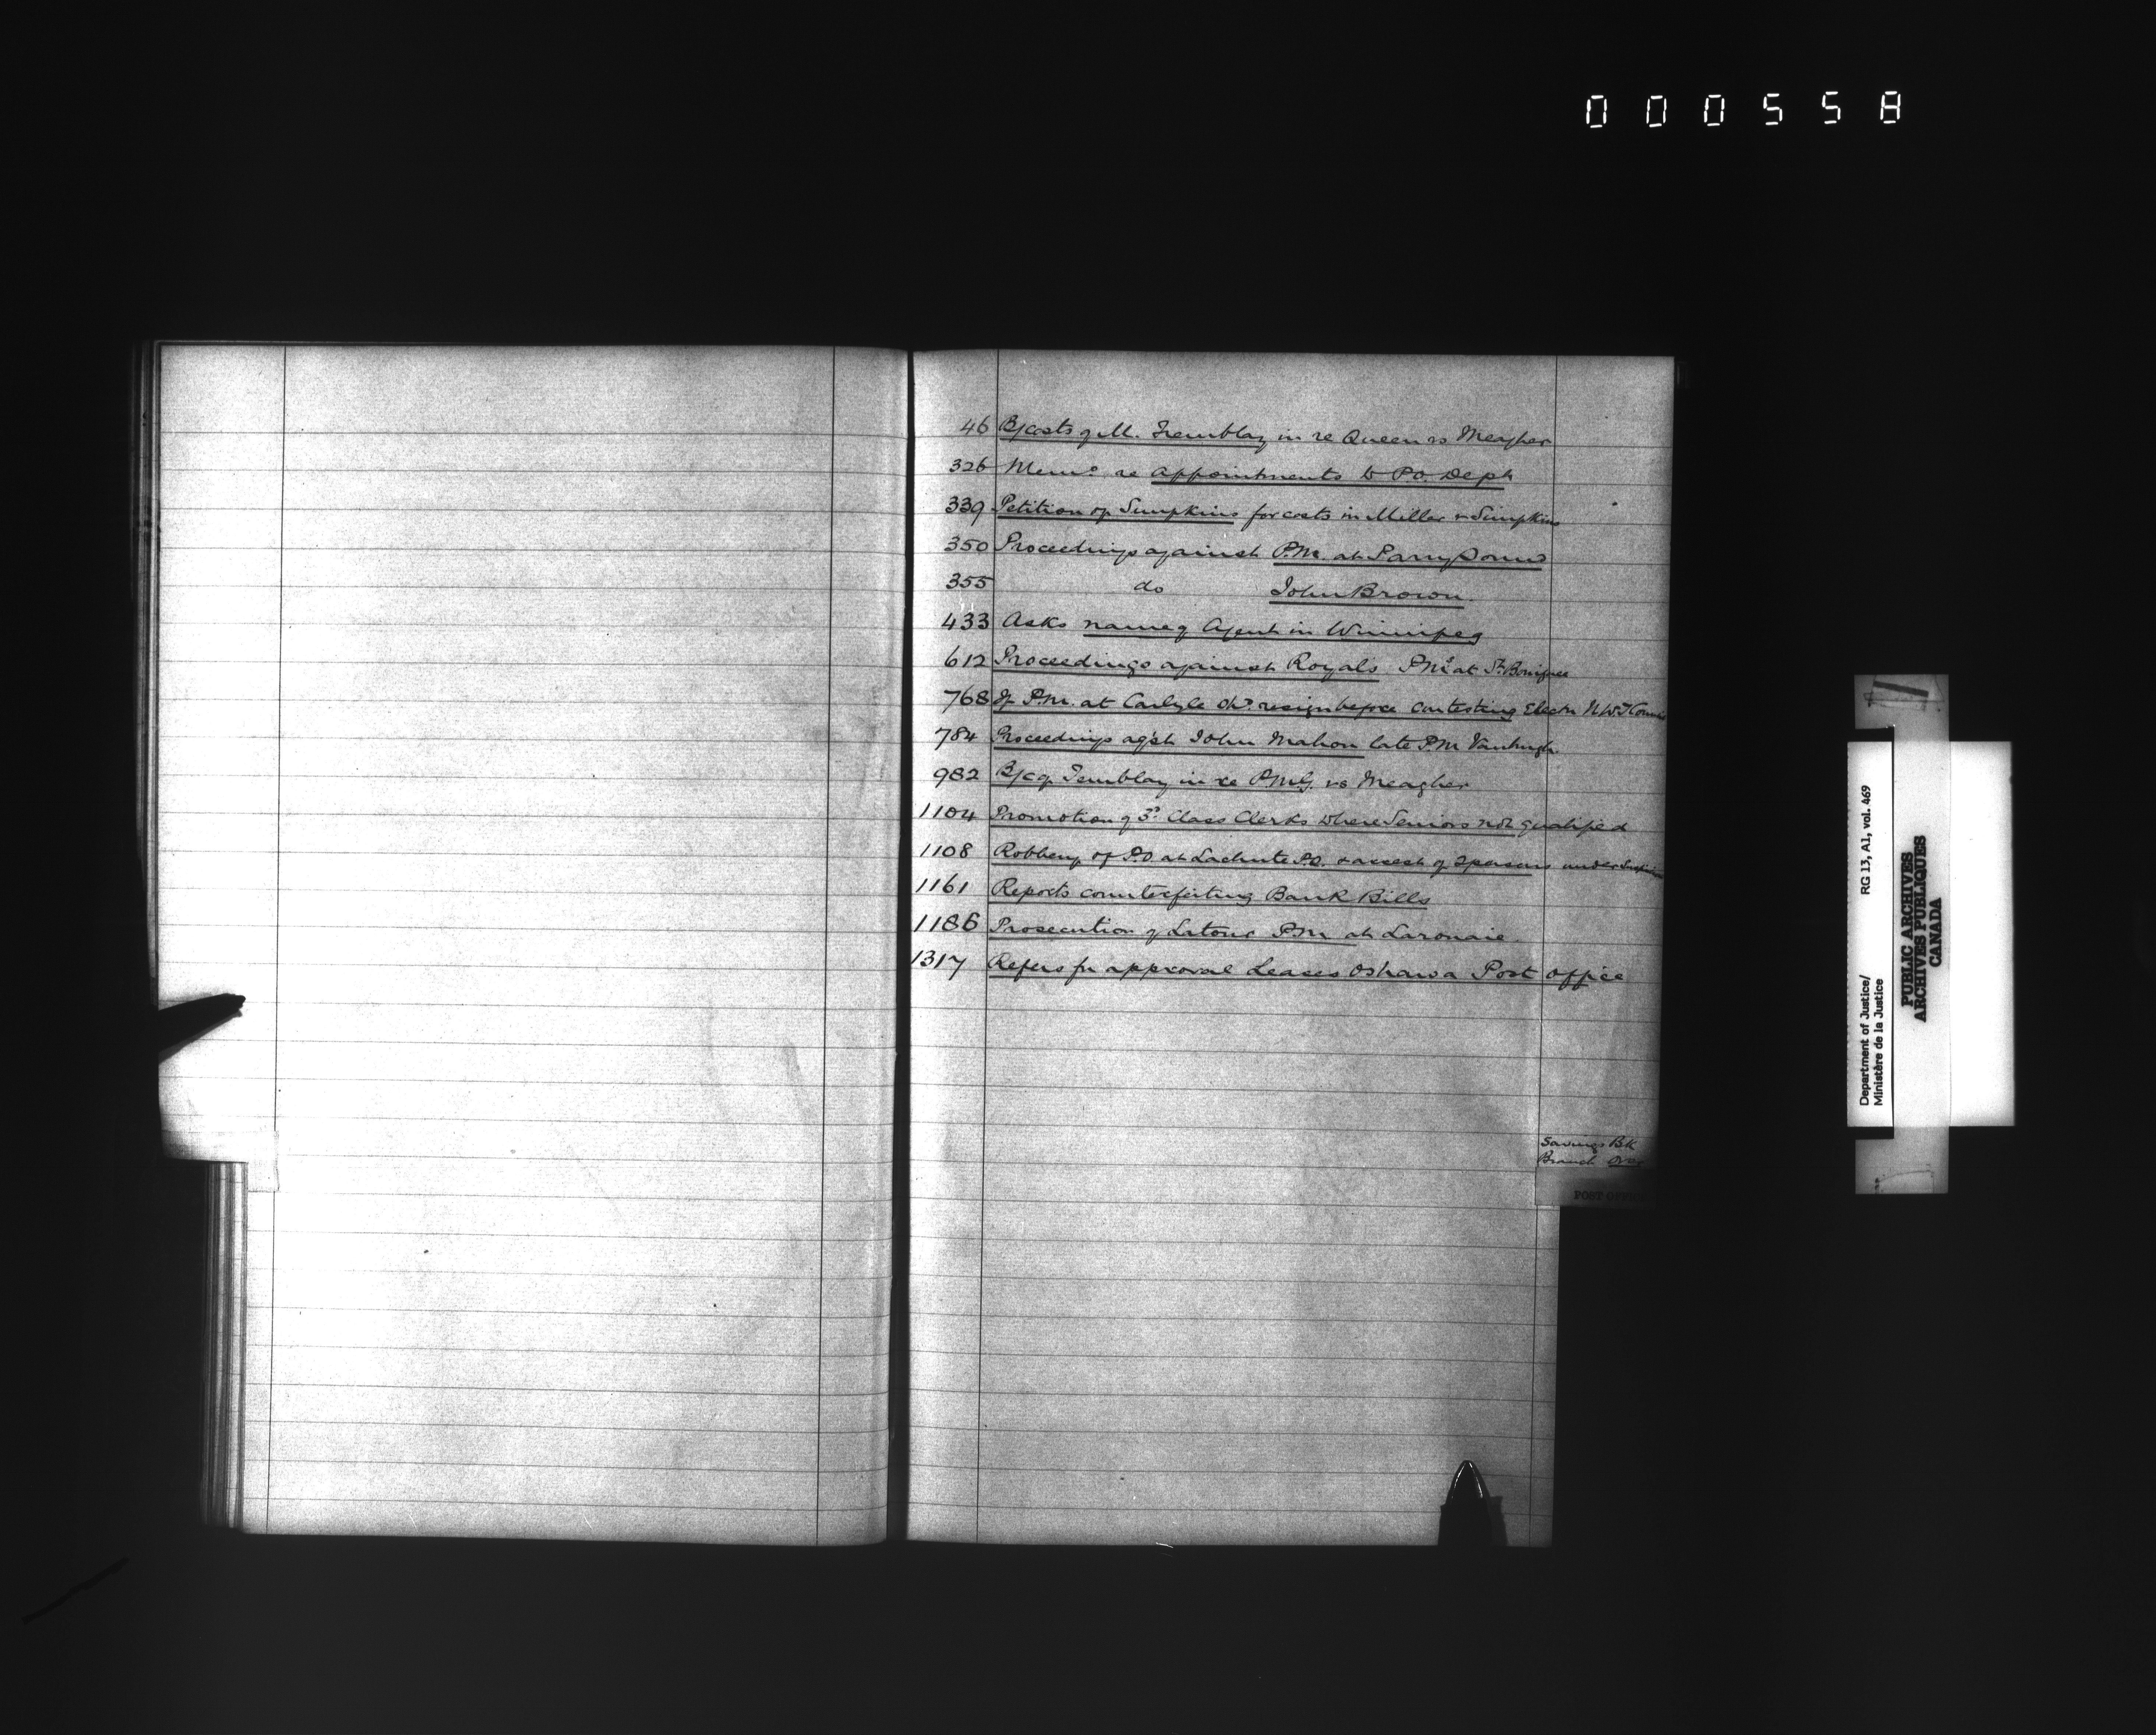 000558
46 B/costs of M. Tremblay in re Queen vs Meagher
326 Memo re appointments to P.O. Dept
339 Petition of Simpkins for costs in Miller v Simpkins
350 Proceedings against P.M. at Parry Sound
355 do John Brown.
433 Asks name of Agent in Winnipeg
612 Proceedings against Royals P.M. at St. Boniface
768 If P.M. at Carlyle shd. resign before contesting Electn N.W.T Council
784 Proceedings agst John Mahon late P.M.
982 B/c of Tremblay in re P.M.G. vs Meagher
1104 Promotion of 3rd Class Clerks where Seniors not qualified
1108 Robbery of P.O. at Lachute P.Q. & arrest of 2 persons under Suspicion
1161 Reports counterfeiting Bank Bills
1186 Prosecution of Latour P.M. at Lanoraie.
1317 Refers for approval Leases Oshawa Post Office
Savings Bk
Branch Over
POST OFFICE
Department of Justice/ RG 13, A1, vol. 469
Ministère de la Justice
PUBLIC ARCHIVES
ARCHIVES PUBLIQUES
CANADA